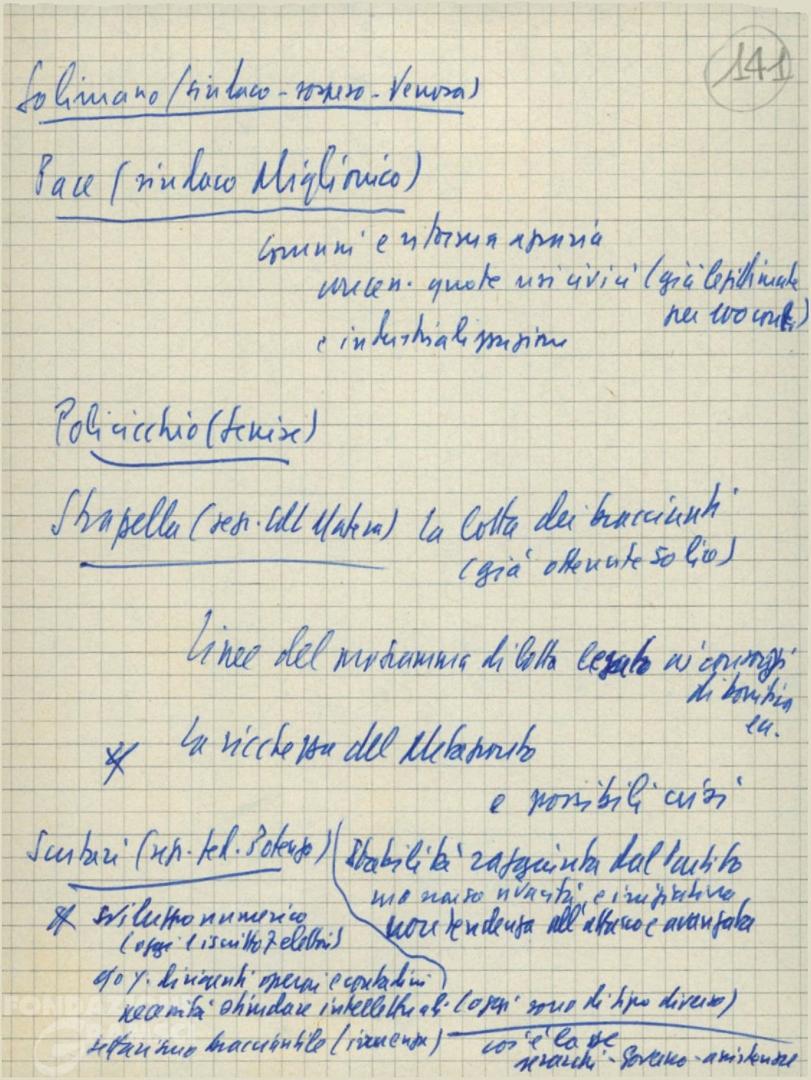 141
Solimano (sindaco - sospeso - Venosa)
Pace (sindaco Miglionico)
comuni e riforma agraria
concen. quote usi civici (già legittimate
per 100 cont.)
e industrializzazione
Policicchio (Senise)
Strapella (segr. CdL Matera) La lotta dei braccianti
(già ottenute 50 lire)
Linee del programma di lotta legato ai consorzi
di bonifica
ecc.
* La ricchezza del Metaponto
e possibili crisi
Scutari (segr. fed. Potenza)
Stabilità raggiunta dal Partito
ma scarso vivacità e iniziativa
non tendenza all'attacco e avanzata
* sviluppo numerico
(oggi 1 iscritto 7 elettori)
dirigenti operai e contadini
necessità stimolare intellettuali (oggi sono di tipo diverso)
settarismo bracciantile (irruenza)
cos'è la DC
gerarchi - governo - assistenze